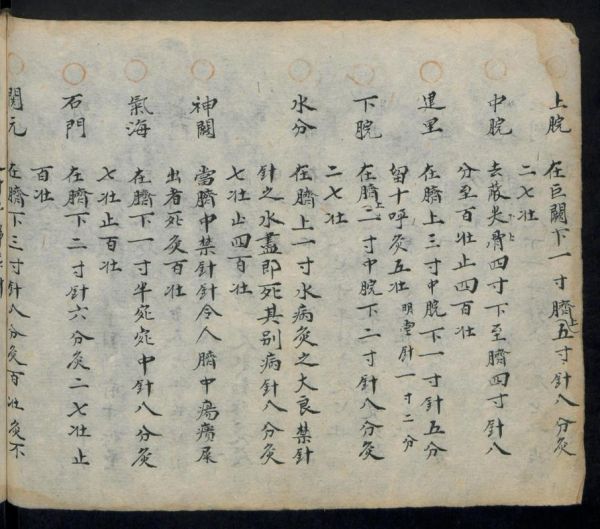 上脘 在巨闕下一寸臍上五寸針八分灸
二七壯
中脘 去蔽尖骨四寸下至臍四寸針八
分至百壯止四百壯
建里 在臍上三寸中脘下一寸針五分
留十呼灸五壯 明堂針一寸二分
下脘 在臍上二寸中脘下二寸針八分灸
二七壯
水分 在臍上一寸水病灸之大良禁針
針之水盡即死其別病針八分灸
七壯止四百壯
神闕 當臍中禁針針令人臍中瘍潰屎
出者死灸百壯
氣海 在臍下一寸半宛宛中針八分灸
七壯止百壯
石門 在臍下二寸針六分灸二七壯止
百壯
關元 在臍下三寸針八分灸百壯灸不